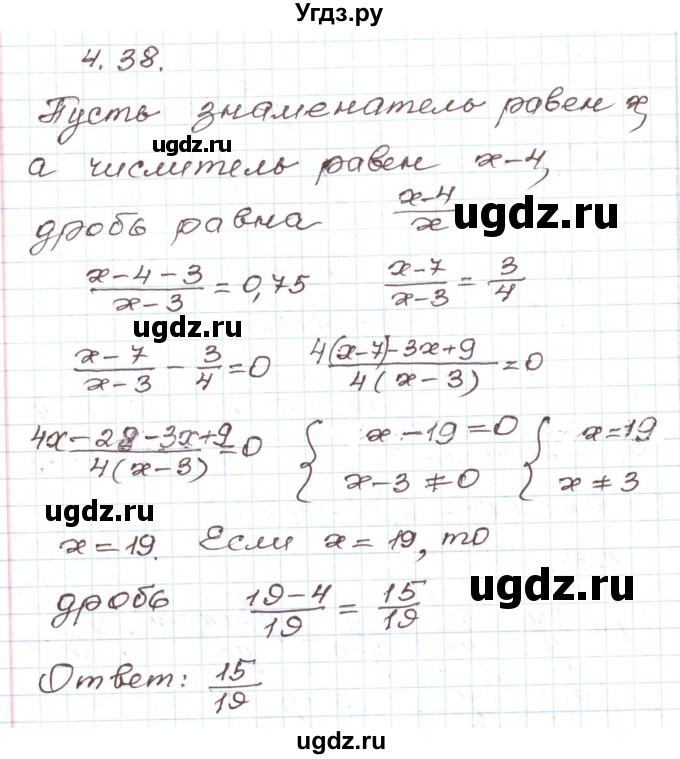 Угдз.ру
4.38.
Пусть знаменатель равен x,
ugdz.ru
а числитель равен x-4,
дробь равна (x-4)/x
ugdz.ru
(x-4-3)/(x-3) = 0,75 (x-7)/(x-3) = 3/4
ugdz.ru
(x-7)/(x-3) - 3/4 = 0 (4(x-7)-3x+9)/(4(x-3)) = 0
(4x-28-3x+9)/(4(x-3)) = 0 { x-19=0 { x=19
x-3≠0 x≠3
ugdz.ru
x=19. Если x=19, то
ugdz.ru
дробь (19-4)/19 = 15/19
Ответ: 15/19
ugdz.ru